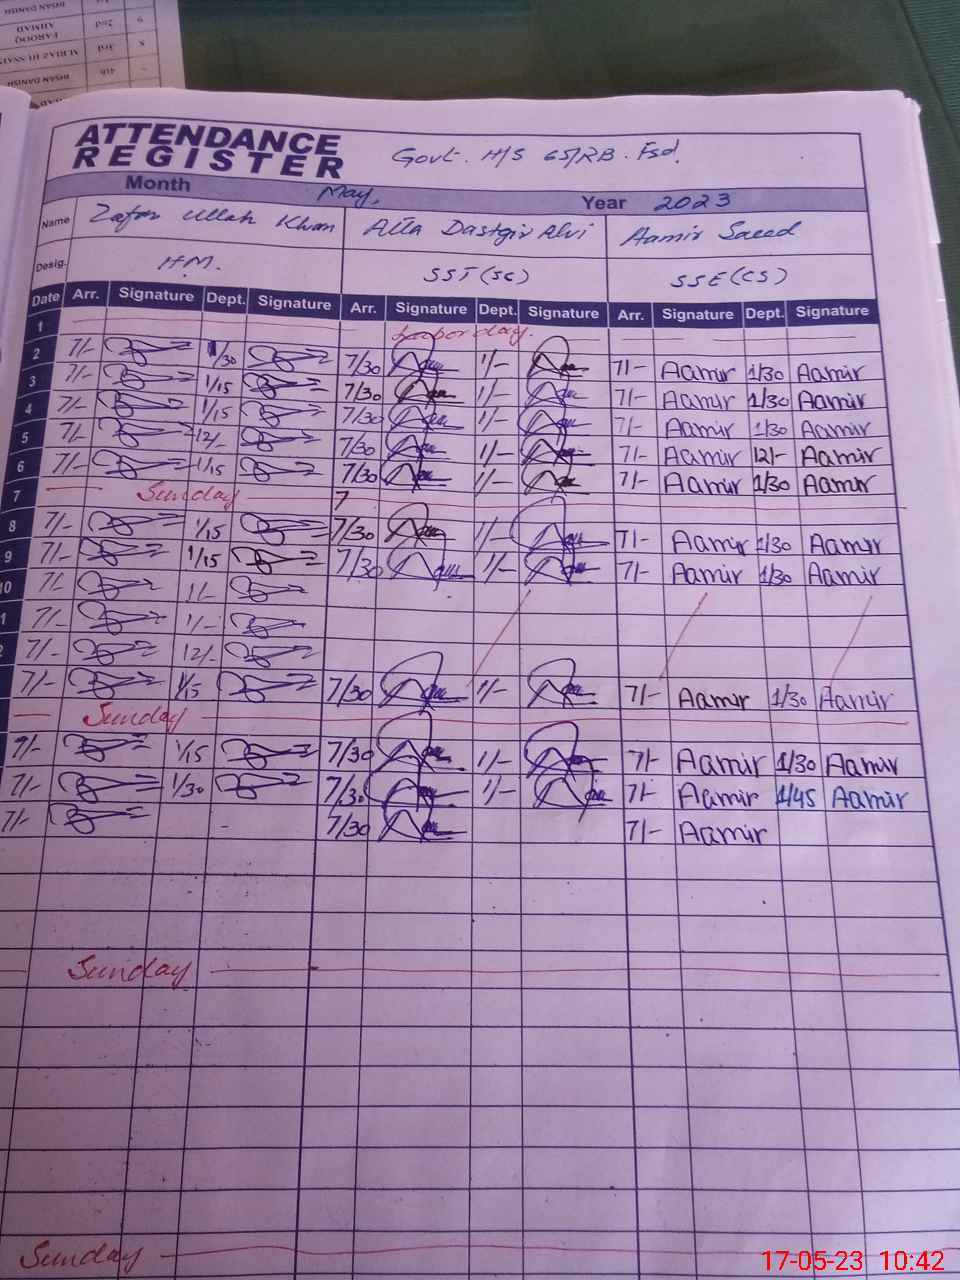 IHSAN DANISH
9 2nd FAROOQ AHMAD
8 3rd
4th IHSAN DANISH
ATTENDANCE REGISTER Govt. H/S 65/RB. Fsd.
Month May, Year 2023
Name Zafar Ullah Khan Atta Dastgir Alvi Aamir Saeed
Desig. H.M. SST (SC) SSE (CS)
Date Arr. Signature Dept. Signature Arr. Signature Dept. Signature Arr. Signature Dept. Signature
1 Labor day.
2 7/- 1/30 7/30 1/- 7/- Aamir 1/30 Aamir
3 7/- 1/15 7/30 1/- 7/- Aamir 1/30 Aamir
4 7/- 1/15 7/30 1/- 7/- Aamir 1/30 Aamir
5 7/- 12/- 7/30 1/- 7/- Aamir 12/- Aamir
6 7/- 1/15 7/30 1/- 7/- Aamir 1/30 Aamir
7 Sunday 7
8 7/- 1/15 7/30 1/- 7/- Aamir 1/30 Aamir
9 7/- 1/15 7/30 1/- 7/- Aamir 1/30 Aamir
10 7/- 1/-
1 7/- 1/-
2 7/- 12/-
7/- 1/15 7/30 1/- 7/- Aamir 1/30 Aamir
Sunday
9/- 1/15 7/30 1/- 7/- Aamir 1/30 Aamir
7/- 1/30 7/30 1/- 7/- Aamir 1/45 Aamir
7/- 7/30 7/- Aamir
Sunday
Sunday
17-05-23 10:42